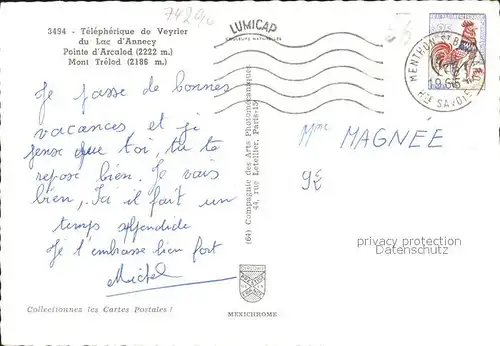 74290
3494 - Téléphérique de Veyrier
du Lac d'Annecy
Pointe d'Arcalod (2222 m.)
Mont Trélod (2186 m.)
LUMICAP
MENTHON ST BERNARD
1965
HTE SAVOIE
Je passe de bonnes
vacances et je
pense que toi, tu te
repose bien. Je vais
bien, Ici il fait un
temps splendide
Je t'embrasse bien fort
Michel
(64) Compagnie des Arts Photomécaniques
44, rue Letellier, Paris-15e
Mme MAGNÉE
9E
privacy protection
Datenschutz
MEXICHROME
Collectionnez les Cartes Postales !